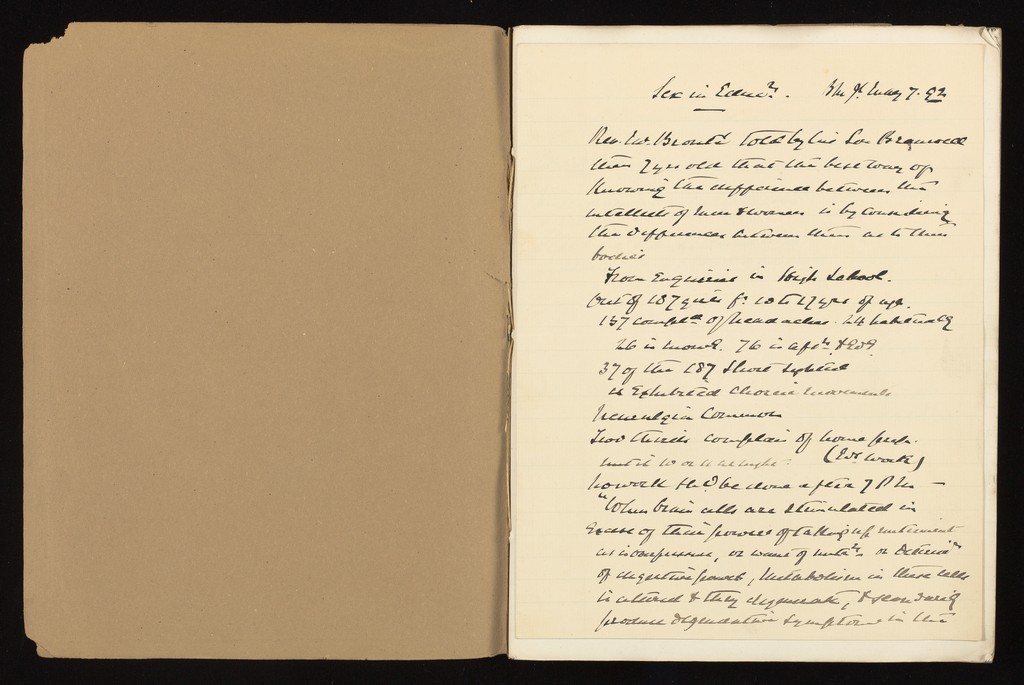 Sex in Educn. B M J. May 7. 92
Rev. Mr. Bronte told by his Son Branwell
then 7 yrs old that the best way of
knowing the difference between the
intellects of men & women is by considering
the differences between them as to their
bodies
From Enquiries in High School.
Out of 187 girls fr. 10 to 17 yrs of age.
137 compld of headaches. 24 habitually
26 in morng. 76 in aftn. & evg.
37 of the 187 Short Sighted
Exhibited choreic movements
Neuralgia Common
Two thirds complain of home prep.
until 10 or 11 at night. (Evg work)
no work shd be done after 7 P M —
"When brain cells are stimulated in
excess of their power of taking up nutriment
as is compression, or want of nutrn. or deteriorn
of digestive power, metabolism in these cells
is altered & they degenerate, & secondarily
produce degenerative symptoms in the